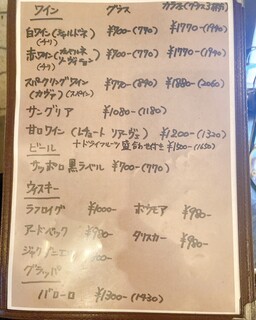 ワイン グラス カラフェ(グラス3杯分)
白ワイン(シャルドネ) ¥700-(770) ¥1770-(1940)
(チリ)
赤ワイン(カベルネ ソーヴィニヨン) ¥700-(770) ¥1770-(1940)
(チリ)
スパークリングワイン ¥770-(840) ¥1880-(2060)
(カヴァ) (スペイン)
サングリア ¥1080-(1180)
甘口ワイン ¥1200-(1320)
+ドライフルーツ盛合わせ付き ¥1500-(1650)
ビール
サッポロ黒ラベル ¥700-(770)
ウイスキー
ラフロイグ ¥1000- ボウモア ¥980-
アードベック ¥980- タリスカー ¥980-
ジャック
グラッパ
バローロ ¥1300-(1430)